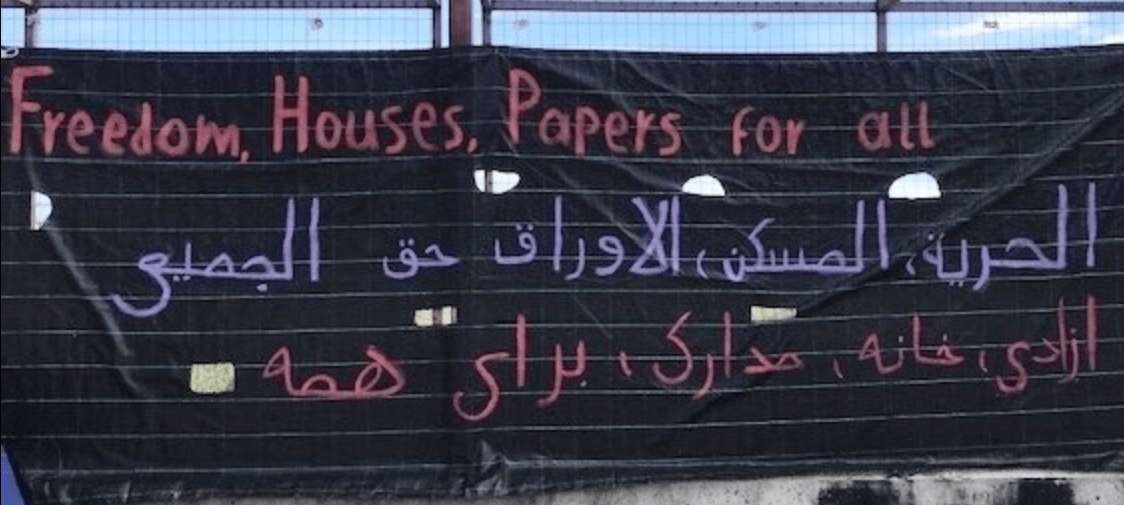 Freedom, Houses, Papers for all
الحرية، المسكن، الاوراق حق الجميع
ازادي، خانه، مدارک، برای همه